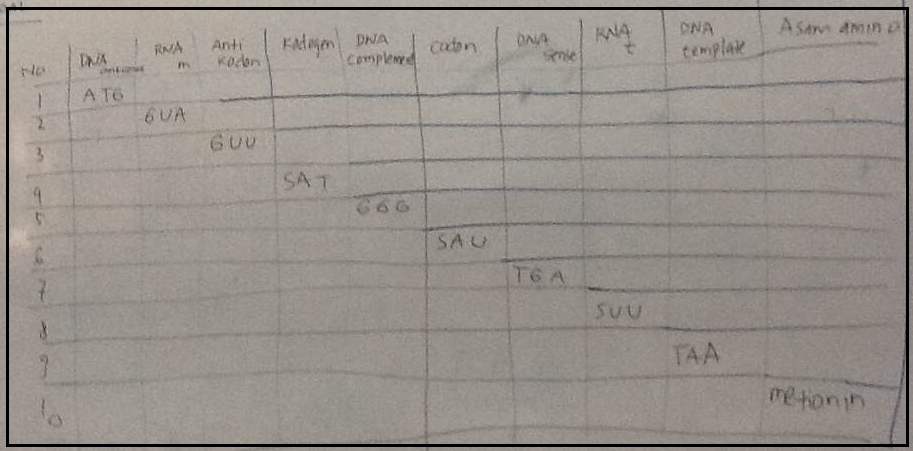 No DNA antisense RNA m Anti Kodon Kadogen DNA complement codon DNA sense RNA t DNA template Asam amino
1 ATG
2 GUA
3 GUU
4 SAT
5 GGG
6 SAU
7 TGA
8 SUU
9 TAA
10 metionin